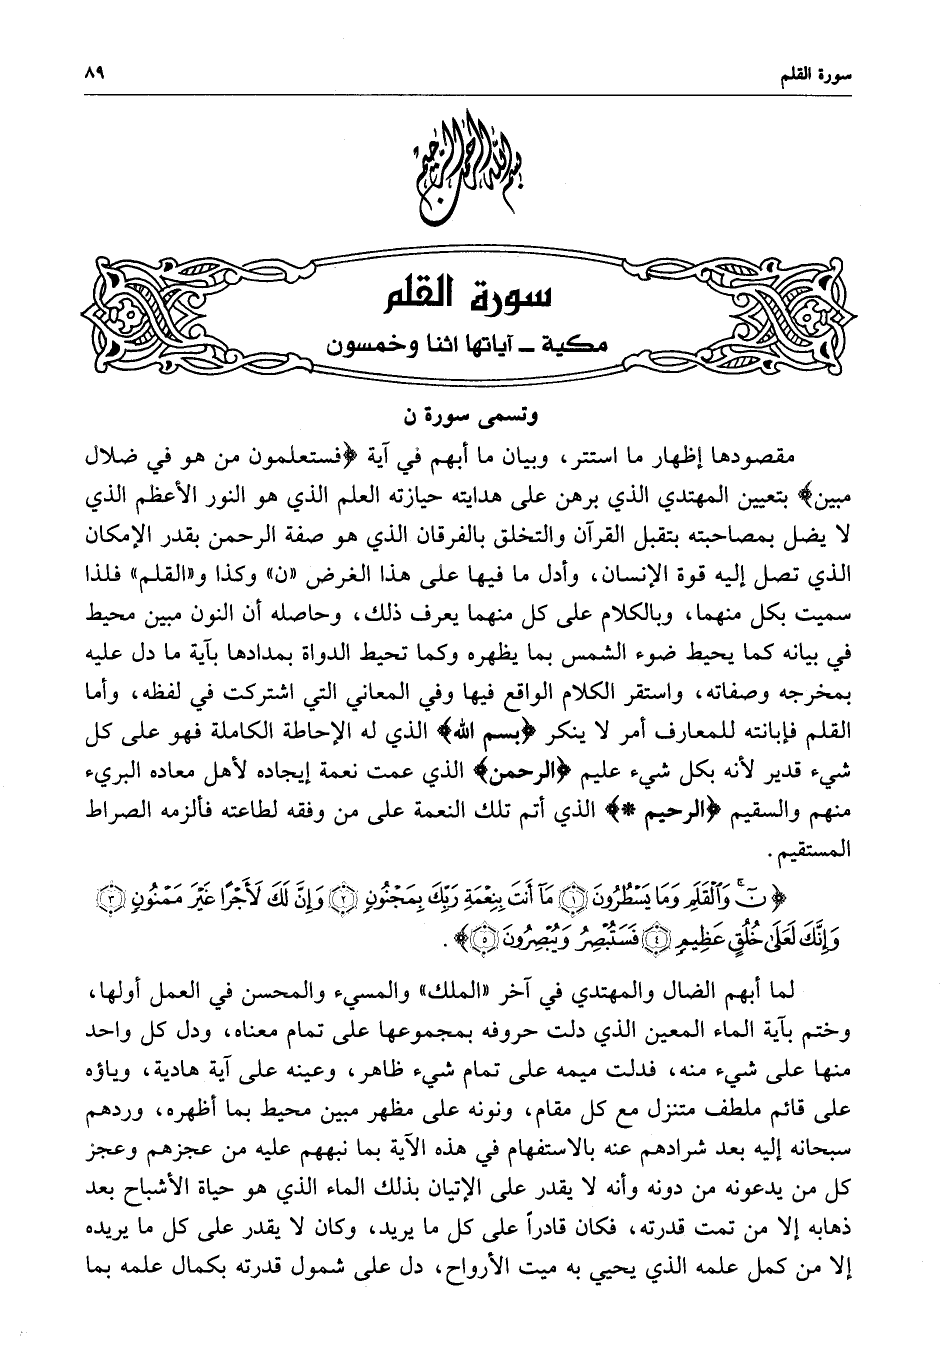 سورة القلم
٨٩
بسم الله الرحمن الرحيم
سورة القلم
مكية ــ آياتها اثنا وخمسون
وتسمى سورة ن
مقصودها إظهار ما استتر، وبيان ما أبهم في آية ﴿فستعلمون من هو في ضلال
مبين﴾ بتعيين المهتدي الذي برهن على هدايته حيازته العلم الذي هو النور الأعظم الذي
لا يضل بمصاحبته بتقبل القرآن والتخلق بالفرقان الذي هو صفة الرحمن بقدر الإمكان
الذي تصل إليه قوة الإنسان، وأدل ما فيها على هذا الغرض «ن» وكذا و«القلم» فلذا
سميت بكل منهما، وبالكلام على كل منهما يعرف ذلك، وحاصله أن النون مبين محيط
في بيانه كما يحيط ضوء الشمس بما يظهره وكما تحيط الدواة بمدادها بآية ما دل عليه
بمخرجه وصفاته، واستقر الكلام الواقع فيها وفي المعاني التي اشتركت في لفظه، وأما
القلم فإبانته للمعارف أمر لا ينكر ﴿بسم الله﴾ الذي له الإحاطة الكاملة فهو على كل
شيء قدير لأنه بكل شيء عليم ﴿الرحمن﴾ الذي عمت نعمة إيجاده لأهل معاده البريء
منهم والسقيم ﴿الرحيم *﴾ الذي أتم تلك النعمة على من وفقه لطاعته فألزمه الصراط
المستقيم.
﴿نٓ وَٱلْقَلَمِ وَمَا يَسْطُرُونَ ١ مَآ أَنتَ بِنِعْمَةِ رَبِّكَ بِمَجْنُونٍ ٢ وَإِنَّ لَكَ لَأَجْرًا غَيْرَ مَمْنُونٍ ٣
وَإِنَّكَ لَعَلَىٰ خُلُقٍ عَظِيمٍ ٤ فَسَتُبْصِرُ وَيُبْصِرُونَ ٥﴾.
لما أبهم الضال والمهتدي في آخر «الملك» والمسيء والمحسن في العمل أولها،
وختم بآية الماء المعين الذي دلت حروفه بمجموعها على تمام معناه، ودل كل واحد
منها على شيء منه، فدلت ميمه على تمام شيء ظاهر، وعينه على آية هادية، وياؤه
على قائم ملطف متنزل مع كل مقام، ونونه على مظهر مبين محيط بما أظهره، وردهم
سبحانه إليه بعد شرادهم عنه بالاستفهام في هذه الآية بما نبههم عليه من عجزهم وعجز
كل من يدعونه من دونه وأنه لا يقدر على الإتيان بذلك الماء الذي هو حياة الأشباح بعد
ذهابه إلا من تمت قدرته، فكان قادراً على كل ما يريد، وكان لا يقدر على كل ما يريده
إلا من كمل علمه الذي يحيي به ميت الأرواح، دل على شمول قدرته بكمال علمه بما